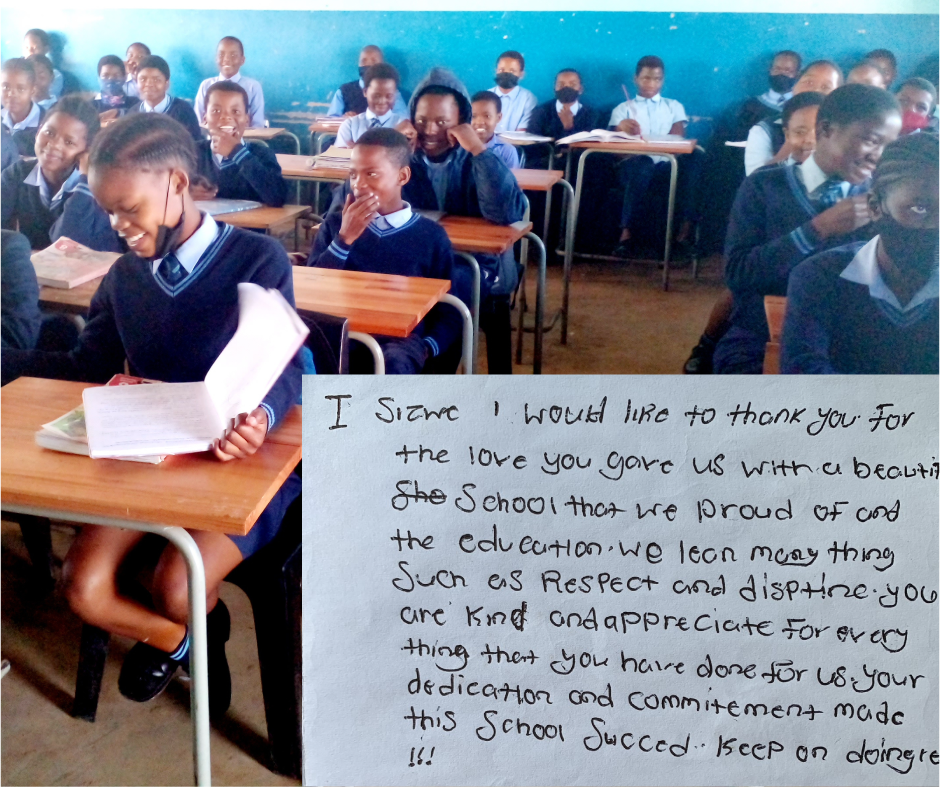 I Sizwe I would like to thank you for
the love you gave us with a
She School that we proud of and
the education. we lean many thing
Such as Respect and disptine. you
are kind and appreciate for every
thing that you have done for us. your
dedication and commitement made
this School Succed.. Keep on
!!!